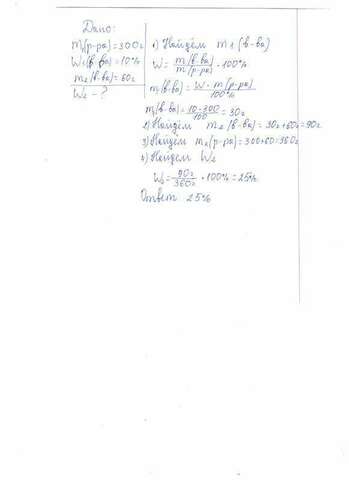 Дано:
m(р-ра)=300г
W1(в-ва)=10%
m2(в-ва)=60г
W2 - ?
1) Найдём m1(в-ва)
W= m(в-ва)/m(р-ра) · 100%
m(в-ва) = W · m(р-ра)/100%
m1(в-ва)= 10·300/100 = 30г
2) Найдём m2(в-ва) = 30г+60г=90г
3) Найдем m2(р-ра)=300+60=360г
4) Найдем W2
W2= 90г/360г · 100% = 25%
Ответ 25%